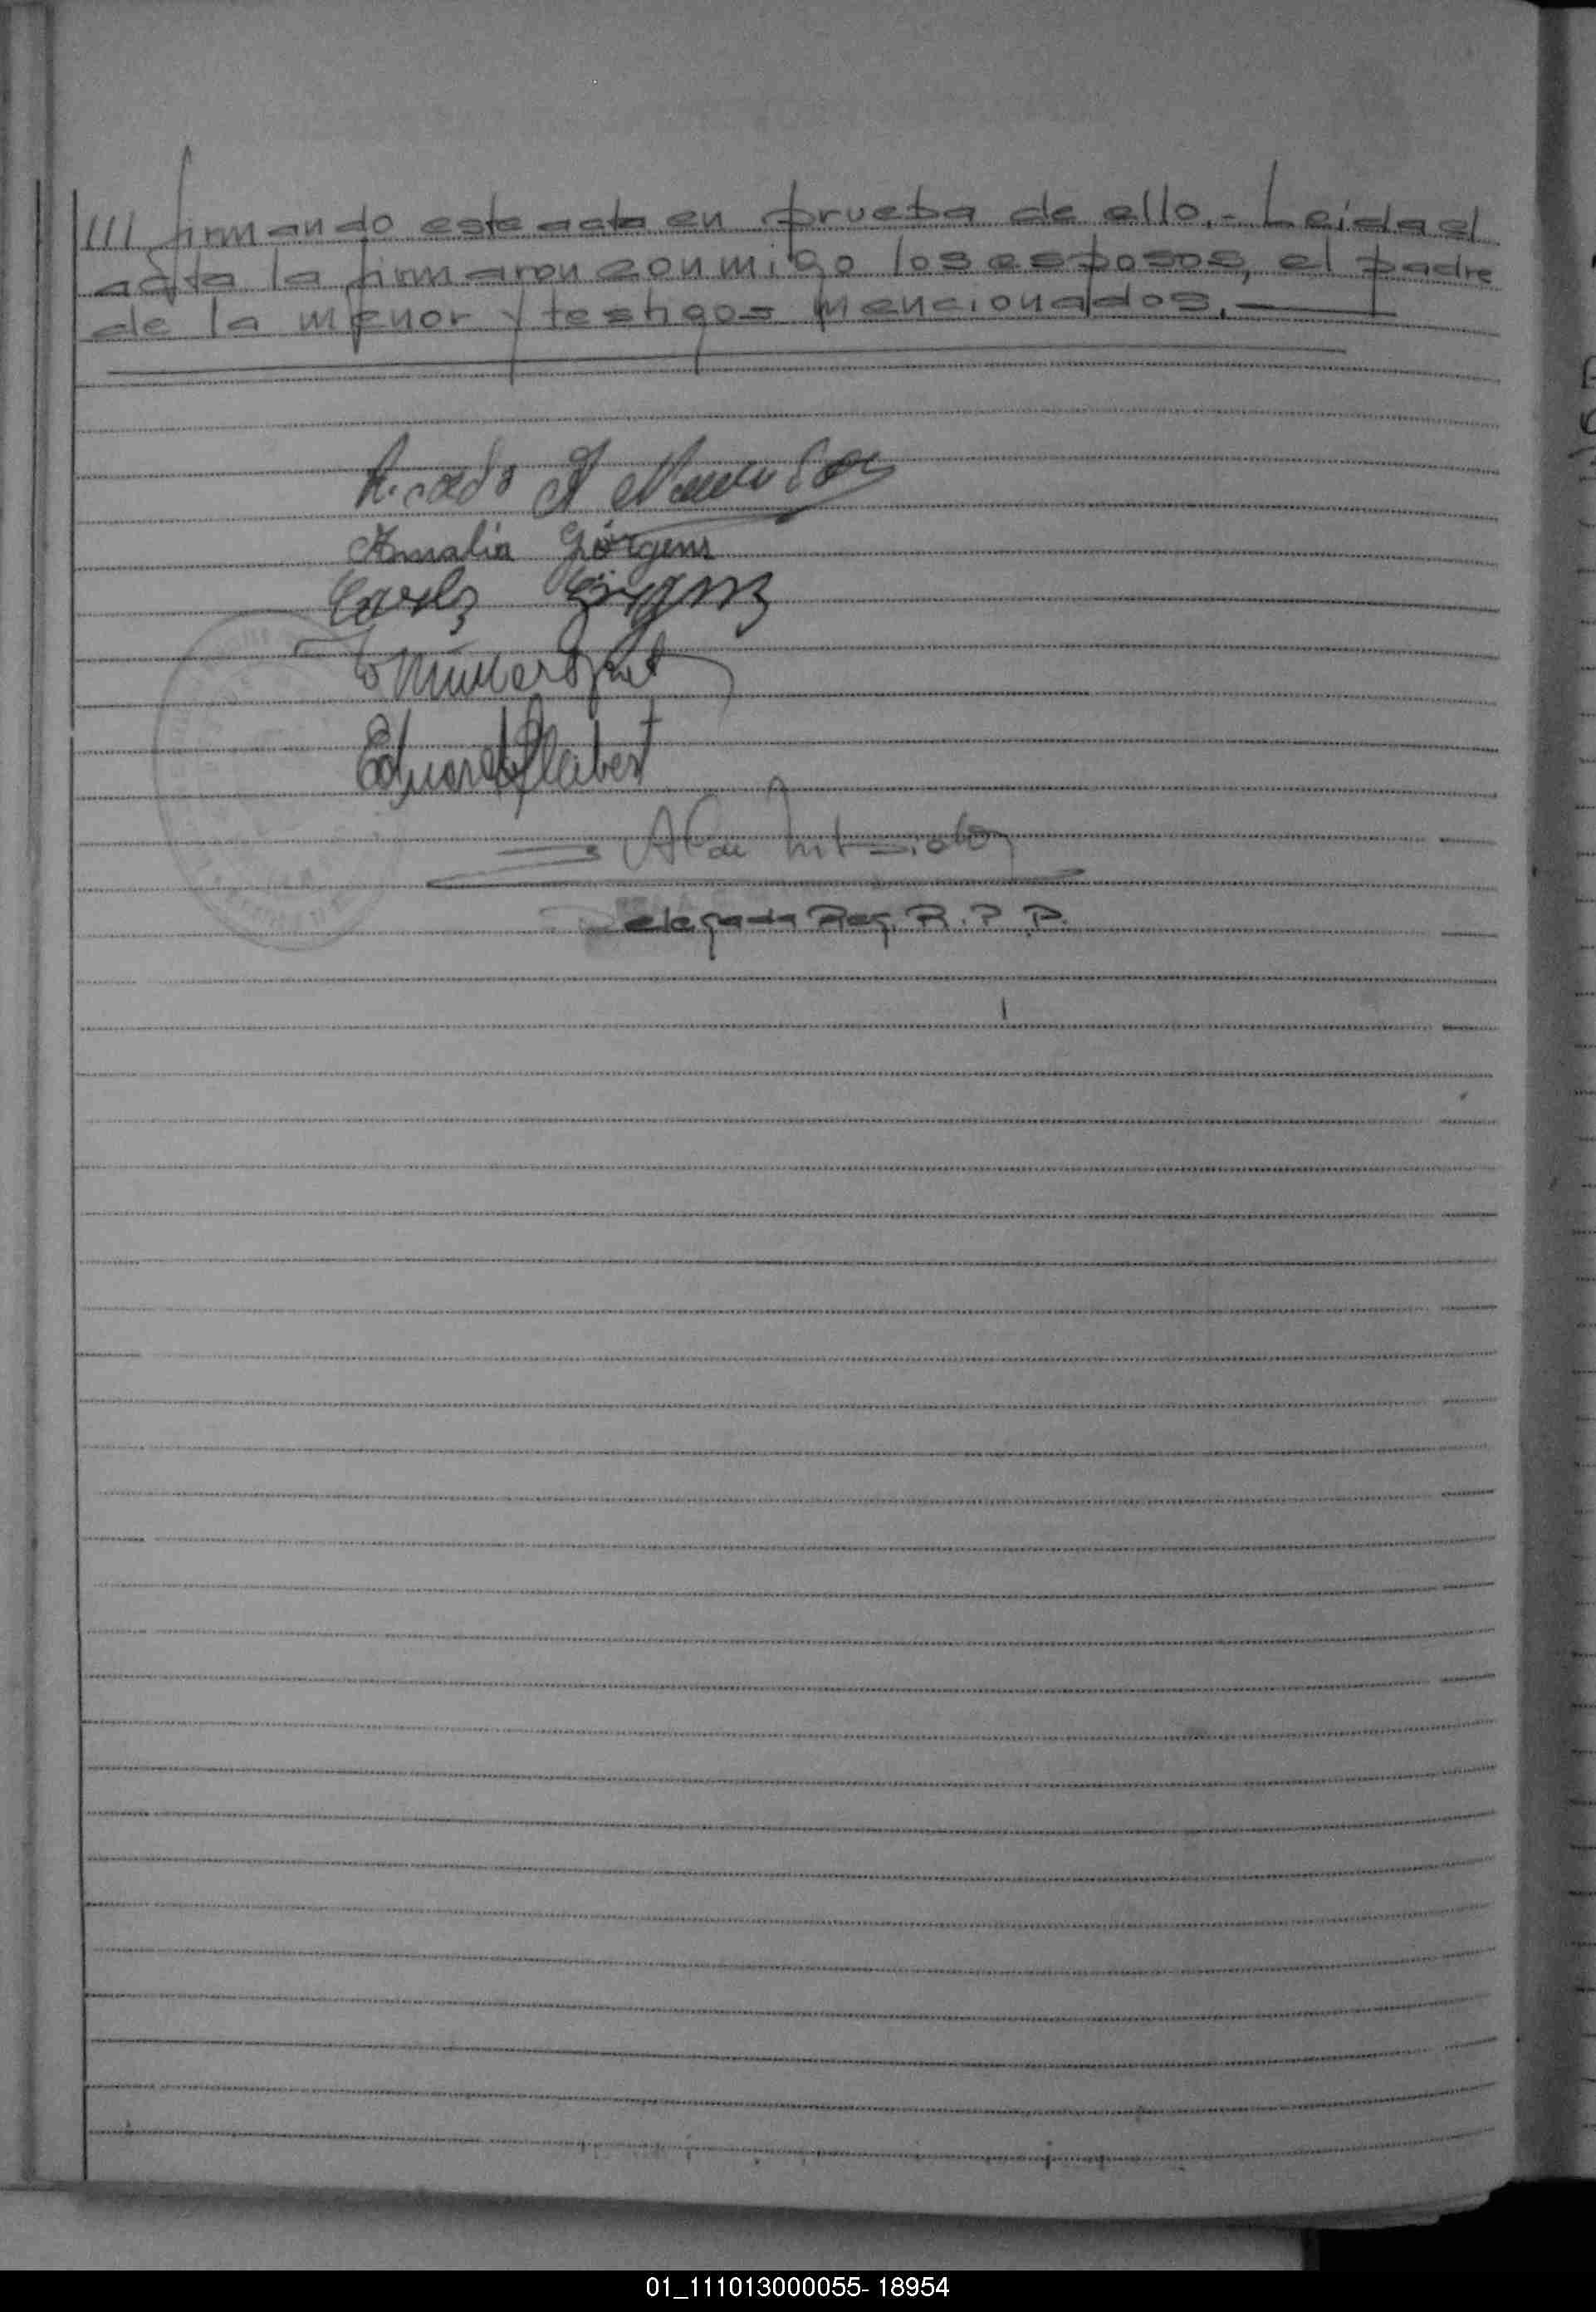 /// firmando este acta en prueba de ello.- Leida el
acta la firmaron conmigo los esposos, el padre
de la menor y testigos mencionados.
Ricardo A
Amalia Görgens
Carlos Görgens
Eduardo
Delegada Reg. R. P. P.
01_111013000055- 18954